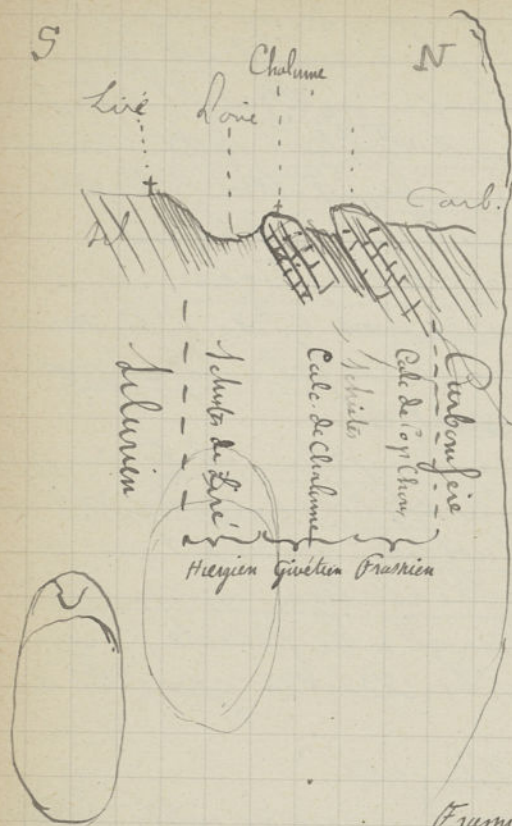 S
N
Chalonne
Liré
Loire
Carb.
Sil
Silurien
Schistes de Liré
Calc. de Chalonne
Schistes
Calc de
Carbonifère
Hiergien Givétien Frasnien